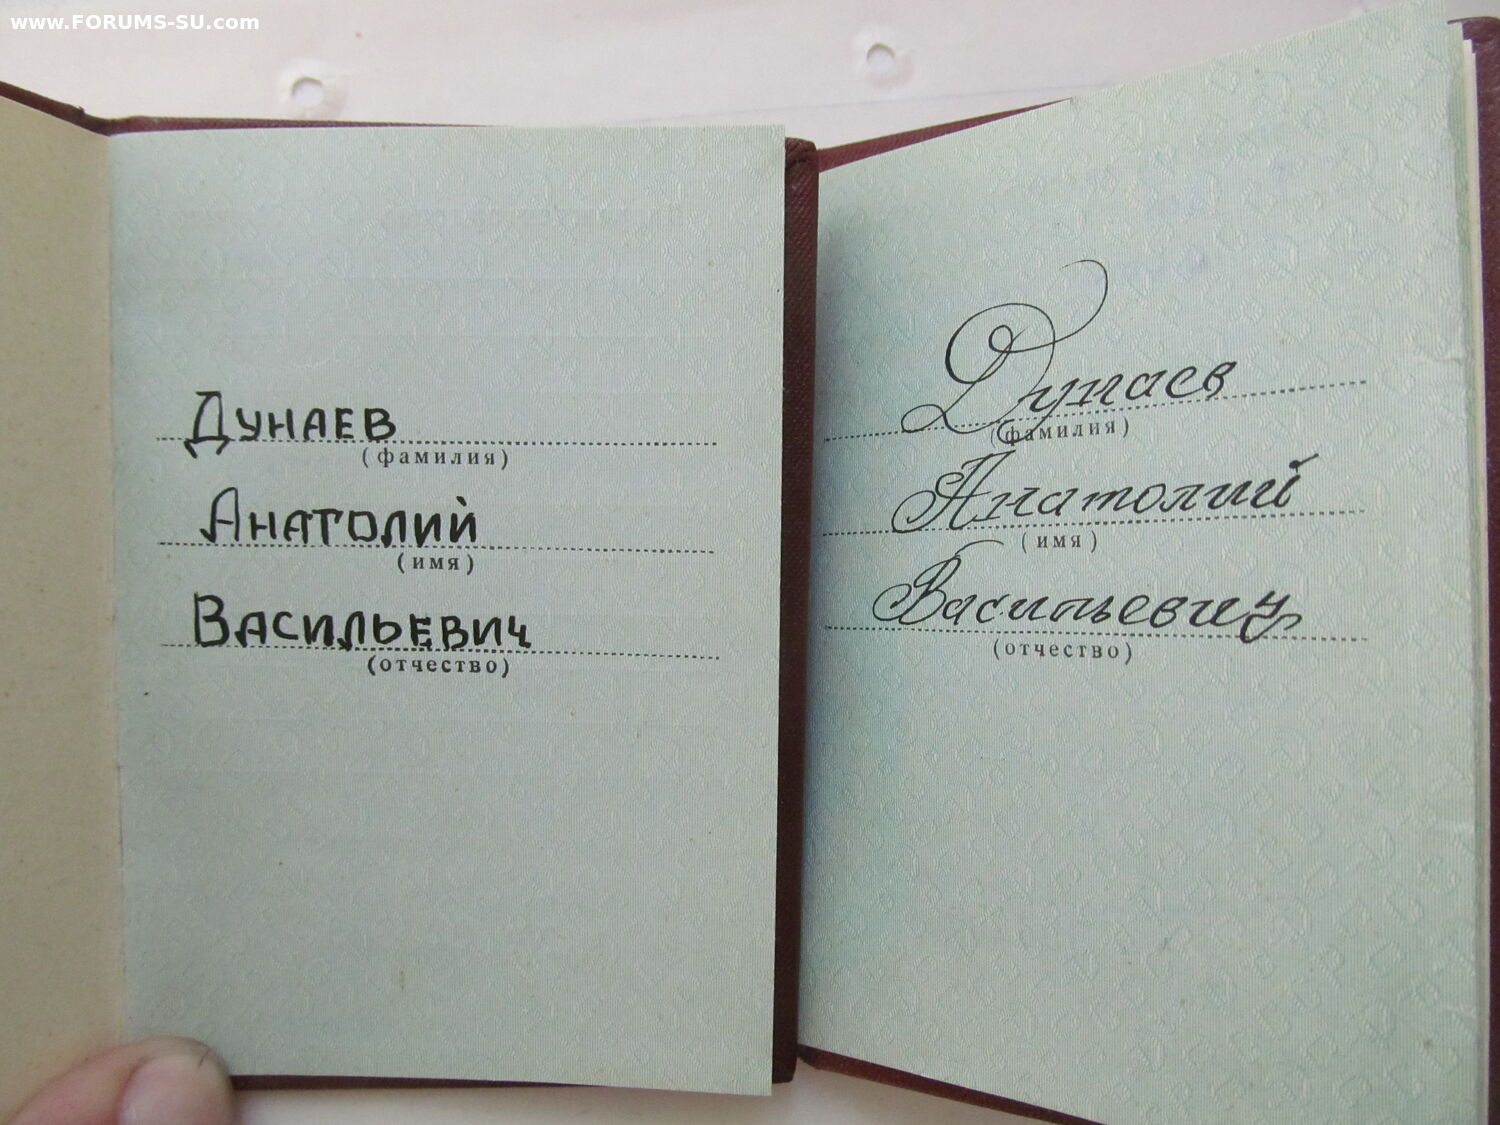 www.FORUMS-SU.com
Дунаев
(фамилия)
Анатолий
(имя)
Васильевич
(отчество)
Дунаев
(фамилия)
Анатолий
(имя)
Васильевич
(отчество)